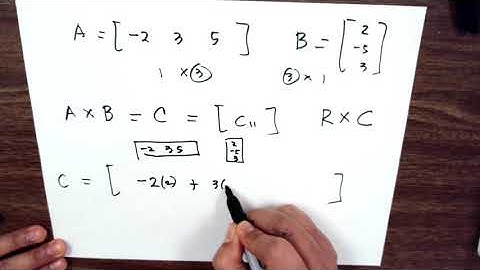 A = [ -2 3 5 ] B = [ 2 -5 3 ]
1 × 3 3 × 1
A × B = C = [ C11 ] R × C
-2 3 5 2 -5 3
C = [ -2(2) + 3( ]